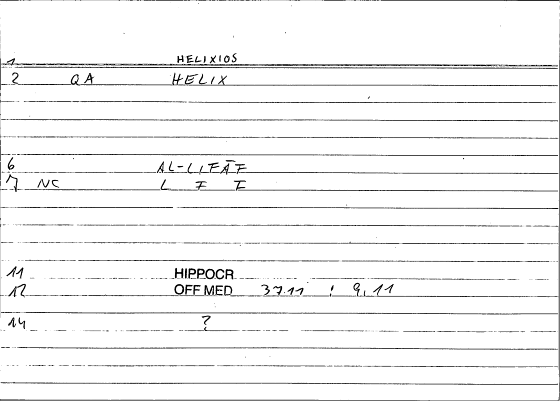 1 HELIXIOS
2 QA HELIX
6 AL-LIFĀF
7 NC L F F
11 HIPPOCR
12 OFF MED 37.11 : 9,11
14 ?